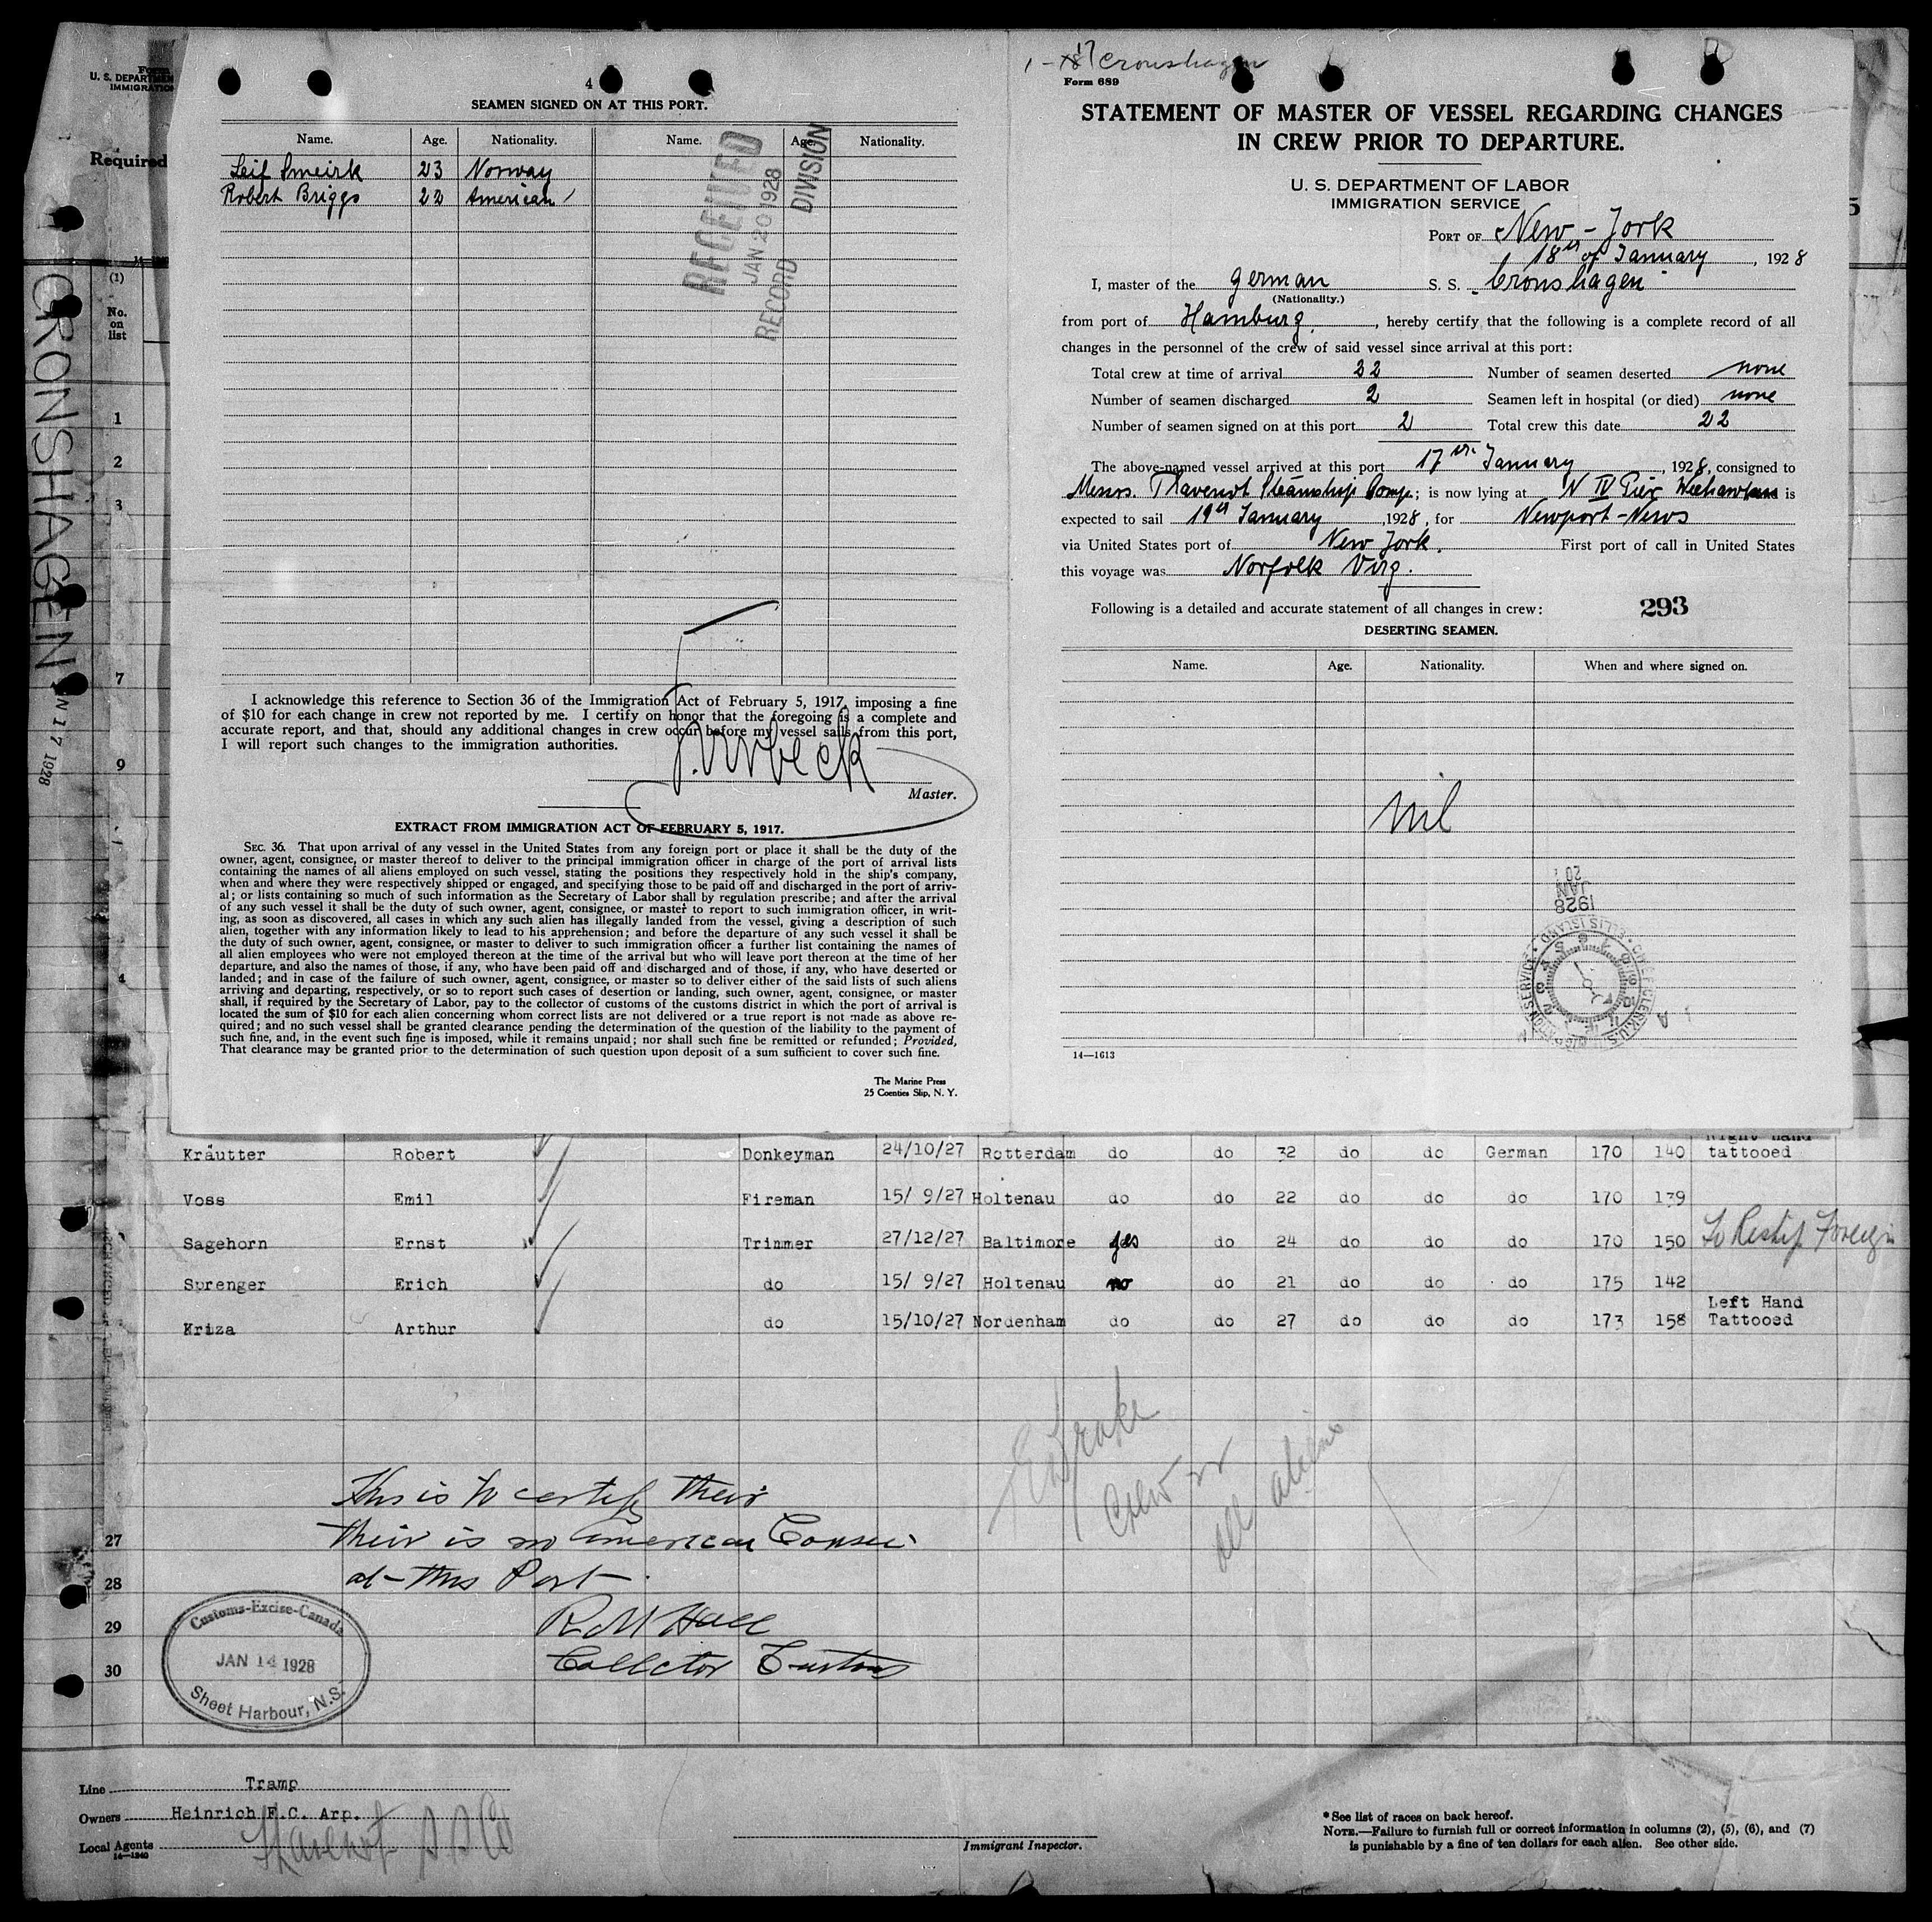 Form
U. S. DEPARTMEN
IMMIGRATION
Required
(1)
No.
on
list
1
2
3
7
9
CRONSHAGEN
N 17 1928
4
SEAMEN SIGNED ON AT THIS PORT.
Name. Age. Nationality. Name. Age. Nationality.
Leif Smeirk 23 Norway
Robert Briggs 22 American
RECEIVED
JAN 20 1928
RECORD DIVISION
I acknowledge this reference to Section 36 of the Immigration Act of February 5, 1917, imposing a fine
of $10 for each change in crew not reported by me. I certify on honor that the foregoing is a complete and
accurate report, and that, should any additional changes in crew occur before my vessel sails from this port,
I will report such changes to the immigration authorities.
Master.
EXTRACT FROM IMMIGRATION ACT OF FEBRUARY 5, 1917.
SEC. 36. That upon arrival of any vessel in the United States from any foreign port or place it shall be the duty of the
owner, agent, consignee, or master thereof to deliver to the principal immigration officer in charge of the port of arrival lists
containing the names of all aliens employed on such vessel, stating the positions they respectively hold in the ship's company,
when and where they were respectively shipped or engaged, and specifying those to be paid off and discharged in the port of arriv-
al; or lists containing so much of such information as the Secretary of Labor shall by regulation prescribe; and after the arrival
of any such vessel it shall be the duty of such owner, agent, consignee, or master to report to such immigration officer, in writ-
ing, as soon as discovered, all cases in which any such alien has illegally landed from the vessel, giving a description of such
alien, together with any information likely to lead to his apprehension; and before the departure of any such vessel it shall be
the duty of such owner, agent, consignee, or master to deliver to such immigration officer a further list containing the names of
all alien employees who were not employed thereon at the time of the arrival but who will leave port thereon at the time of her
departure, and also the names of those, if any, who have been paid off and discharged and of those, if any, who have deserted or
landed; and in case of the failure of such owner, agent, consignee, or master so to deliver either of the said lists of such aliens
arriving and departing, respectively, or so to report such cases of desertion or landing, such owner, agent, consignee, or master
shall, if required by the Secretary of Labor, pay to the collector of customs of the customs district in which the port of arrival is
located the sum of $10 for each alien concerning whom correct lists are not delivered or a true report is not made as above re-
quired; and no such vessel shall be granted clearance pending the determination of the question of the liability to the payment of
such fine, and, in the event such fine is imposed, while it remains unpaid; nor shall such fine be remitted or refunded; Provided,
That clearance may be granted prior to the determination of such question upon deposit of a sum sufficient to cover such fine.
The Marine Press
25 Coenties Slip, N. Y.
Cronshagen
Form 689
STATEMENT OF MASTER OF VESSEL REGARDING CHANGES
IN CREW PRIOR TO DEPARTURE.
U. S. DEPARTMENT OF LABOR
IMMIGRATION SERVICE
PORT OF New-York
18th of January, 1928
I, master of the german S. S. Cronshagen
(Nationality.)
from port of Hamburg, hereby certify that the following is a complete record of all
changes in the personnel of the crew of said vessel since arrival at this port:
Total crew at time of arrival 22 Number of seamen deserted none
Number of seamen discharged 2 Seamen left in hospital (or died) none
Number of seamen signed on at this port 2 Total crew this date 22
The above-named vessel arrived at this port 17th January, 1928, consigned to
Messrs. Steamship Comp.; is now lying at N IV Pier Weehawken is
expected to sail 19th January, 1928, for Newport-News
via United States port of New York. First port of call in United States
this voyage was Norfolk Virg.
Following is a detailed and accurate statement of all changes in crew: 293
DESERTING SEAMEN.
Name. Age. Nationality. When and where signed on.
nil
JAN 20
1928
ELLIS ISLAND
14—1613
Kräutter Robert Donkeyman 24/10/27 Rotterdam do do 32 do do German 170 140 Right hand
tattooed
Voss Emil Fireman 15/ 9/27 Holtenau do do 22 do do do 170 139
Sagehorn Ernst Trimmer 27/12/27 Baltimore yes do 24 do do do 170 150 To Reship Foreign
Sprenger Erich do 15/ 9/27 Holtenau no do 21 do do do 175 142
Kriza Arthur do 15/10/27 Nordenham do do 27 do do do 173 158 Left Hand
Tattooed
Crew 22
all aliens
This is to certify their
their is no American Consul
at this Port
R M Hall
Collector Customs
27
28
29
30
Customs-Excise-Canada
JAN 14 1928
Sheet Harbour, N.S.
Line Tramp
Owners Heinrich F.C. Arp.
Local Agents
14—1240
Immigrant Inspector.
*See list of races on back hereof.
NOTE.—Failure to furnish full or correct information in columns (2), (5), (6), and (7)
is punishable by a fine of ten dollars for each alien. See other side.